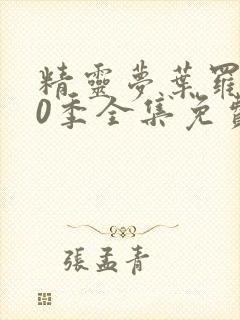 精靈夢葉羅
0季全集免費
張孟青